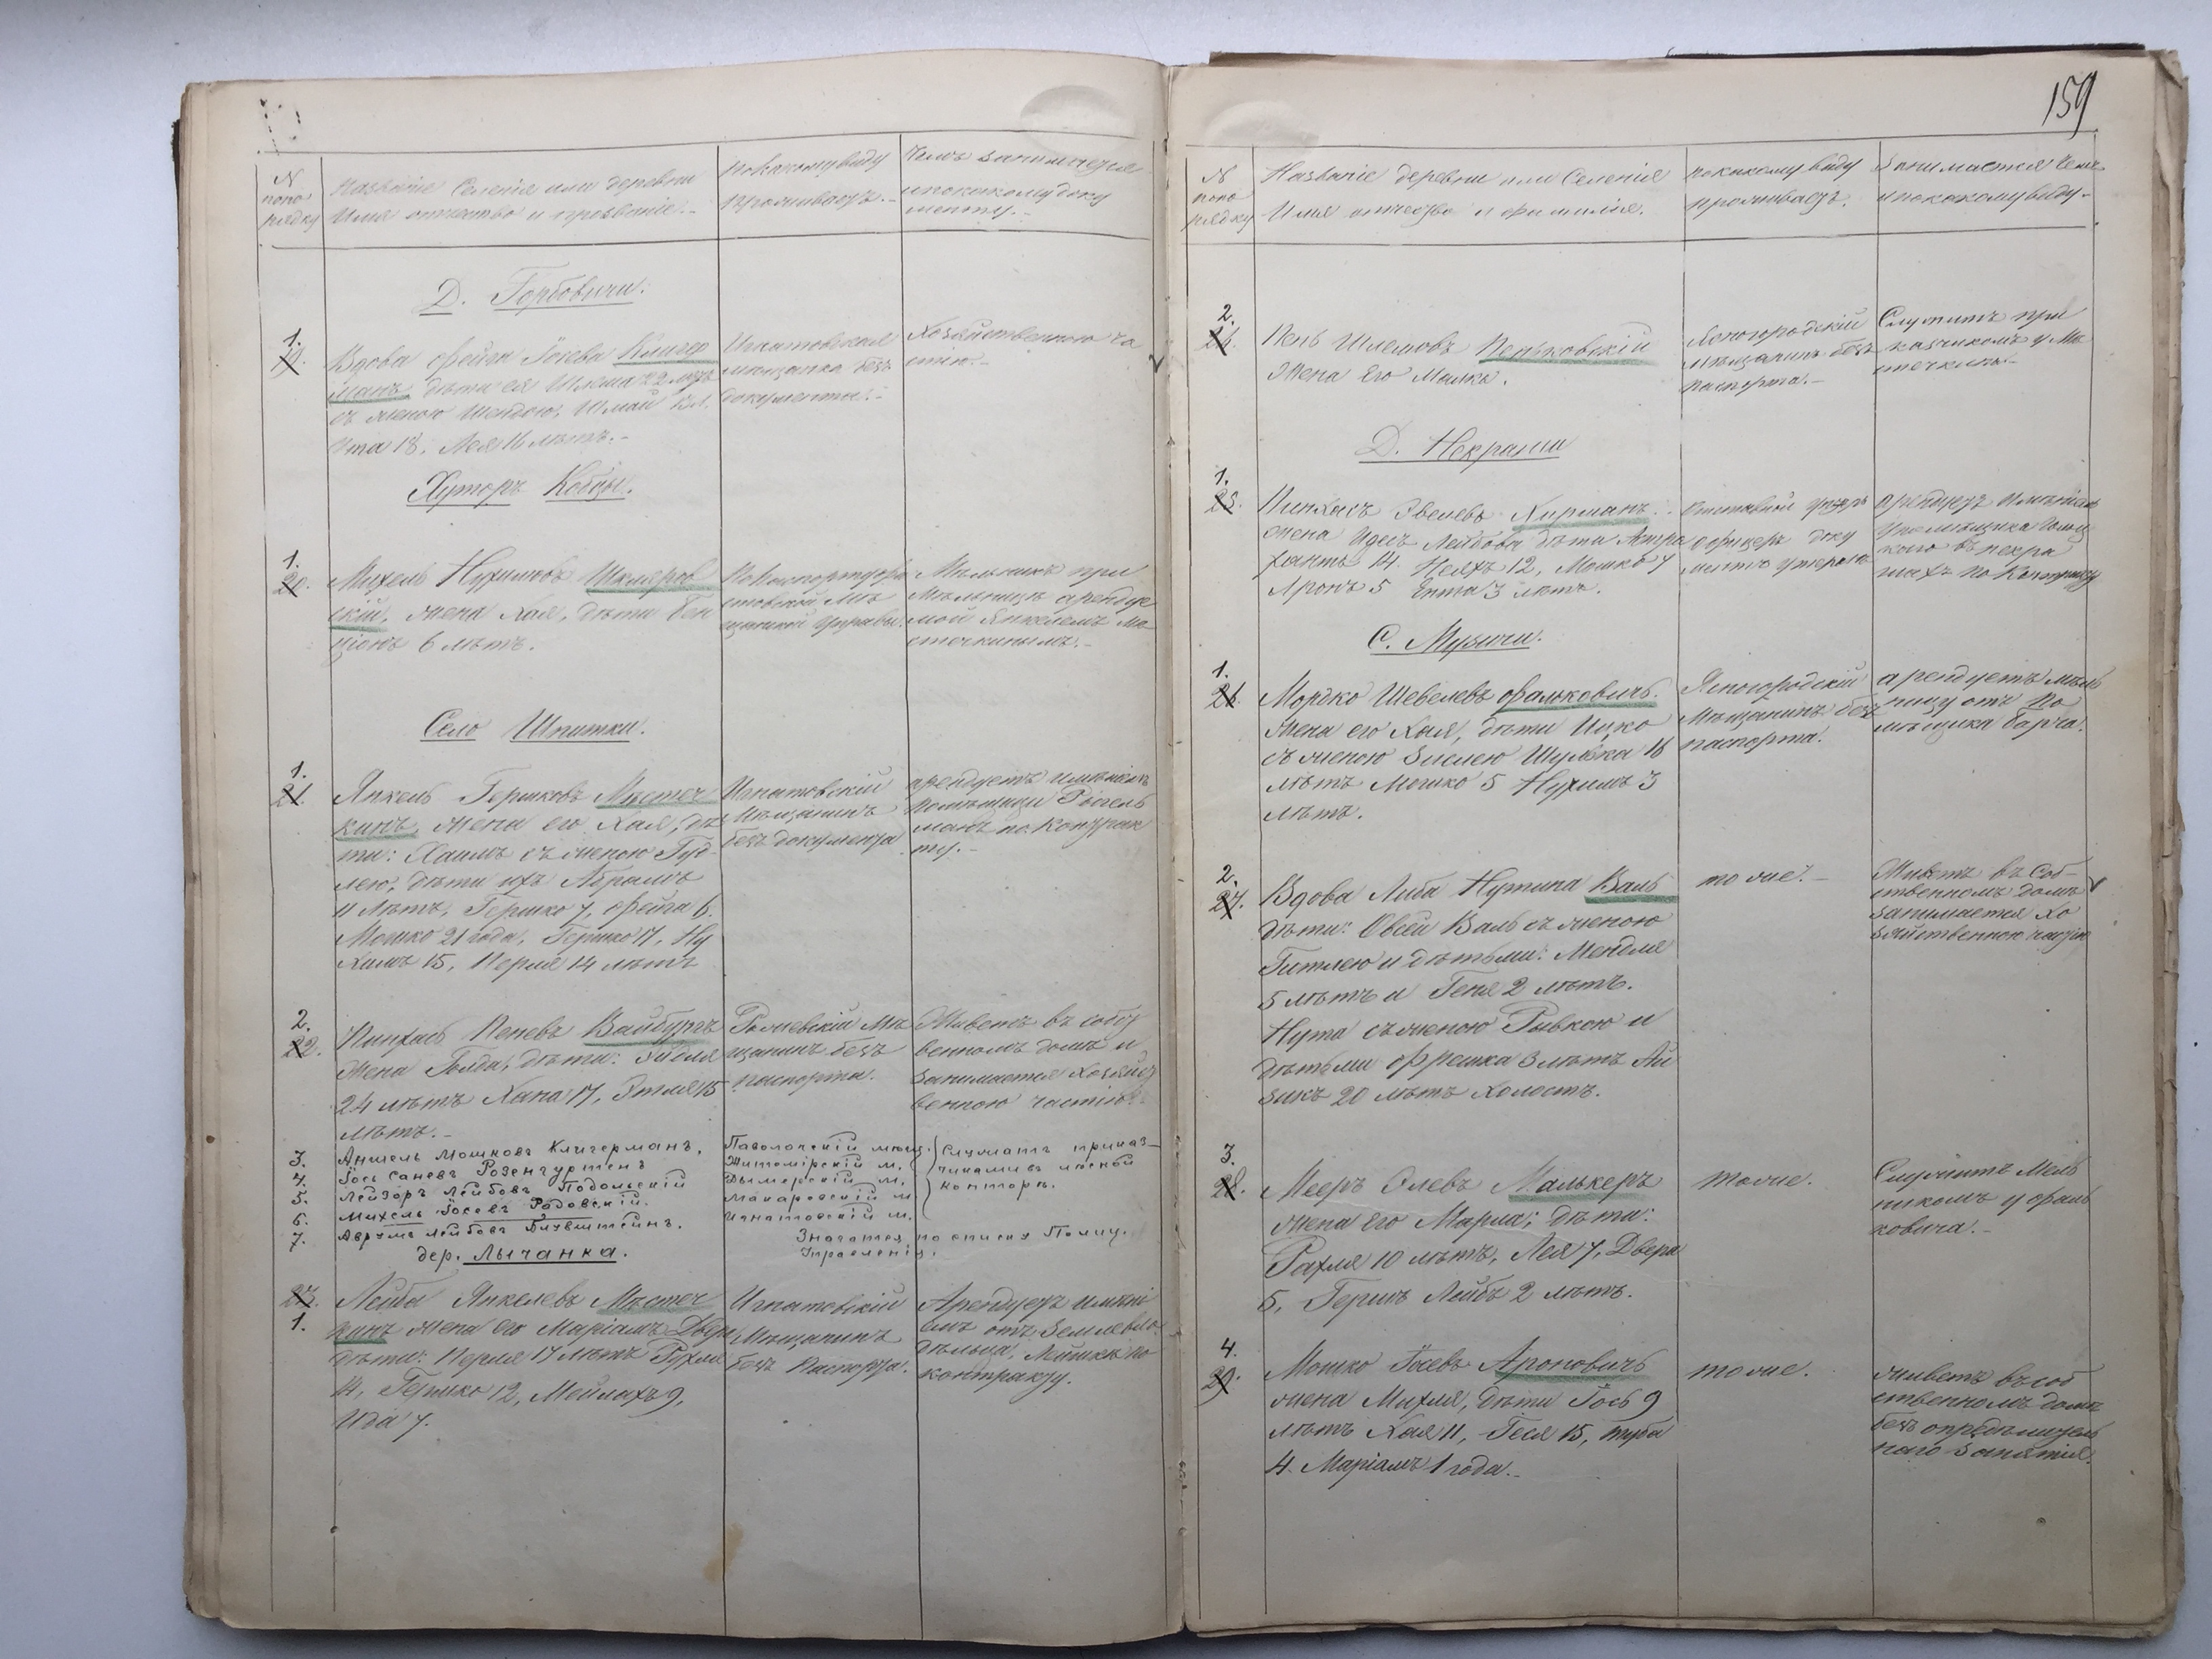 N
попо
рядку
Названіе Селенія или деревни
Имя отчество и прозваніе.-
по какому виду
проживаетъ.-
Чемъ занимается
и по какому доку
менту.-
Д. Горбовичи.
1.
19.
Вдова Фейга Іосева Клигер
манъ, дѣти ея Шлема 22 лѣтъ
съ женою Шейдою, Шмай
Ита 18, Лея 16 лѣтъ.-
Игнатовская
мѣщанка безъ
документа.-
Хозяйственною ча
стію.-
Хуторъ Кобцы.
1.
20.
Михель Нухимовъ Шкляров
скій, жена Хая, дѣти Бен
ціонъ 6 лѣтъ.
По паспорту
Мѣ
щанской Управы.
Мельникъ при
Мѣльницѣ арендуе
мой Янкелемъ Мѣ
стечкинымъ.-
Село Шпитки.
1.
21.
Янкель Гершковъ Мѣстеч
кинъ, жена его Хая, дѣ
ти: Хаимъ съ женою Гуд-
лею, дѣти ихъ Абрамъ
11 лѣтъ, Гершко 7, Фейга 6.
Мошко 21 года, Гершко 17, Ну
химъ 15, Перля 14 лѣтъ
Игнатовскій
Мѣщанинъ
безъ документа
арендуетъ имѣніемъ
помѣщицы
по Контрак
ту.-
2.
22.
Пинхасъ Пеневъ Вайбургъ
жена Голда, дѣти: Зиделя
24 лѣтъ Хана 17, Этля 15
лѣтъ.-
Рожевскій Мѣ
щанинъ безъ
паспорта.
Живетъ въ собст
венномъ домѣ и
занимается Хозяйст
венною частію.-
3. Аншель Мошковъ Клигерманъ. Паволочскій мѣщ.
4. Іось Саневъ Розенгуртенъ Житомірскій м.
5. Лейзоръ Лейбовъ Подольскій Дымерскій м.
6. Михель Іосевъ Радовскій. Макаровскій м
7. Аврумъ Лейбовъ Блувштейнъ. Игнатовскій м.
Служатъ приказ-
чиками въ лѣсной
конторѣ.
Значатся по списку Полиц.
Управленія.
дер. Лычанка.
23.
1.
Лейба Янкелевъ Мѣстеч
кинъ жена его Маріамъ Двера
дѣти: Перля 17 лѣтъ Рухля
14, Гершко 12, Мейлахъ 9,
Ида 7.
Игнатовскій
Мѣщанинъ
безъ Паспорта.
Арендуетъ имѣні
емъ отъ Землевла
дѣльца, по
контракту.
159
N
попо
рядку
Названіе деревни или Селенія
Имя отчество и фамилія.
по какому виду
проживаетъ.
Занимается Чемъ
и по какому виду.-
2.
24.
Пень Шлемовъ Пеньковскій
жена Его Малка.
Ясногородскій
мѣщанинъ безъ
паспорта.-
Служитъ при
казчикомъ у Мѣ
стечкина.-
Д. Некраши
1.
25.
Пинхасъ Эвелевъ Хирманъ.-
жена Идесъ Лейбова дѣти
14. 12, Мошко 7
Аронъ 5 Ента 3 лѣтъ.
Отставной унтеръ
офицеръ доку
ментъ утерянъ
арендуетъ имѣніемъ
у помѣщика
въ Некра
шахъ по Контракту
С. Музычи.
1.
26.
Мордко Шевелевъ Фальковичъ.
жена его Хая, дѣти Ицко
съ женою Зислею Шулька 16
лѣтъ Мошко 5 Нухимъ 3
лѣтъ.
Ясногородскій
Мѣщанинъ безъ
паспорта.
арендуетъ мѣль
ницу отъ по
мѣщика Барча.
2.
27.
Вдова Либа Нутина Валь
дѣти: Овсей Валь съ женою
Гитлею и дѣтьми: Мендля
5 лѣтъ и Геня 2 лѣтъ.
Нута съ женою Рывкою и
дѣтьми Фрешка 3 лѣтъ Ай
зикъ 20 лѣтъ холостъ.
тоже.-
Живетъ въ соб-
ственномъ домѣ
занимается хо
зяйственною частію
3.
28.
Мееръ Элевъ Малькеръ
жена Его Марла; дѣти:
Рахля 10 лѣтъ, Лея 7, Двера
5, Гершъ Лейбъ 2 лѣтъ.
тоже.
Служитъ Мель
никомъ у Фаль
ковича.-
4.
29.
Мошко Іосевъ Ароновичъ
жена Михля, дѣти Іось 9
лѣтъ Хая 11, Геся 15, Туба
4. Маріамъ 1 года.-
тоже.
живетъ въ соб
ственномъ домѣ
безъ опредѣлитель
наго занятія.